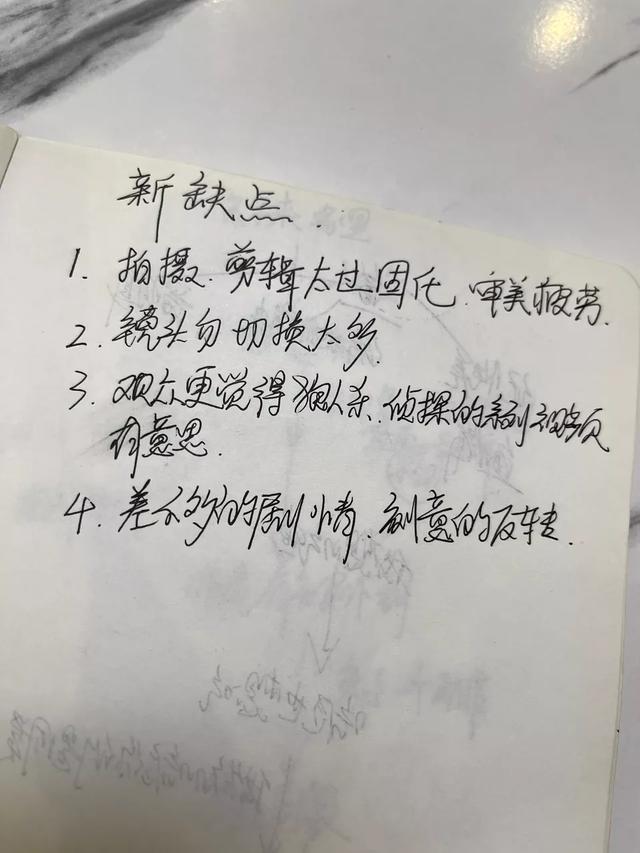 新缺点.
1. 拍摄.剪辑太过固化.审美疲劳.
2. 镜头切换太多.
3. 观众更觉得狼人杀.侦探的系列视频
有意思.
4. 差不多的剧情.刻意的反转.